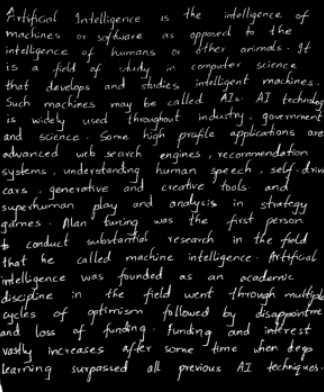 Artificial Intelligence is the intelligence of
machines or software as opposed to the
intelligence of humans or other animals. It
is a field of study in computer science
that develops and studies intelligent machines.
Such machines may be called AIs. AI technolog
is widely used throughout industry, government
and science. Some high profile applications are
advanced web search engines, recommendation
systems, understanding human speech, self-driv
cars, generative and creative tools and
superhuman play and analysis in strategy
games. Alan Turing was the first person
to conduct substantial research in the field
that he called machine intelligence. Artificial
intelligence was founded as an academic
discipline in the field went through multiple
cycles of optimism followed by disappointme
and loss of funding. Funding and interest
vastly increases after some time when deep
learning surpassed all previous AI techniques.